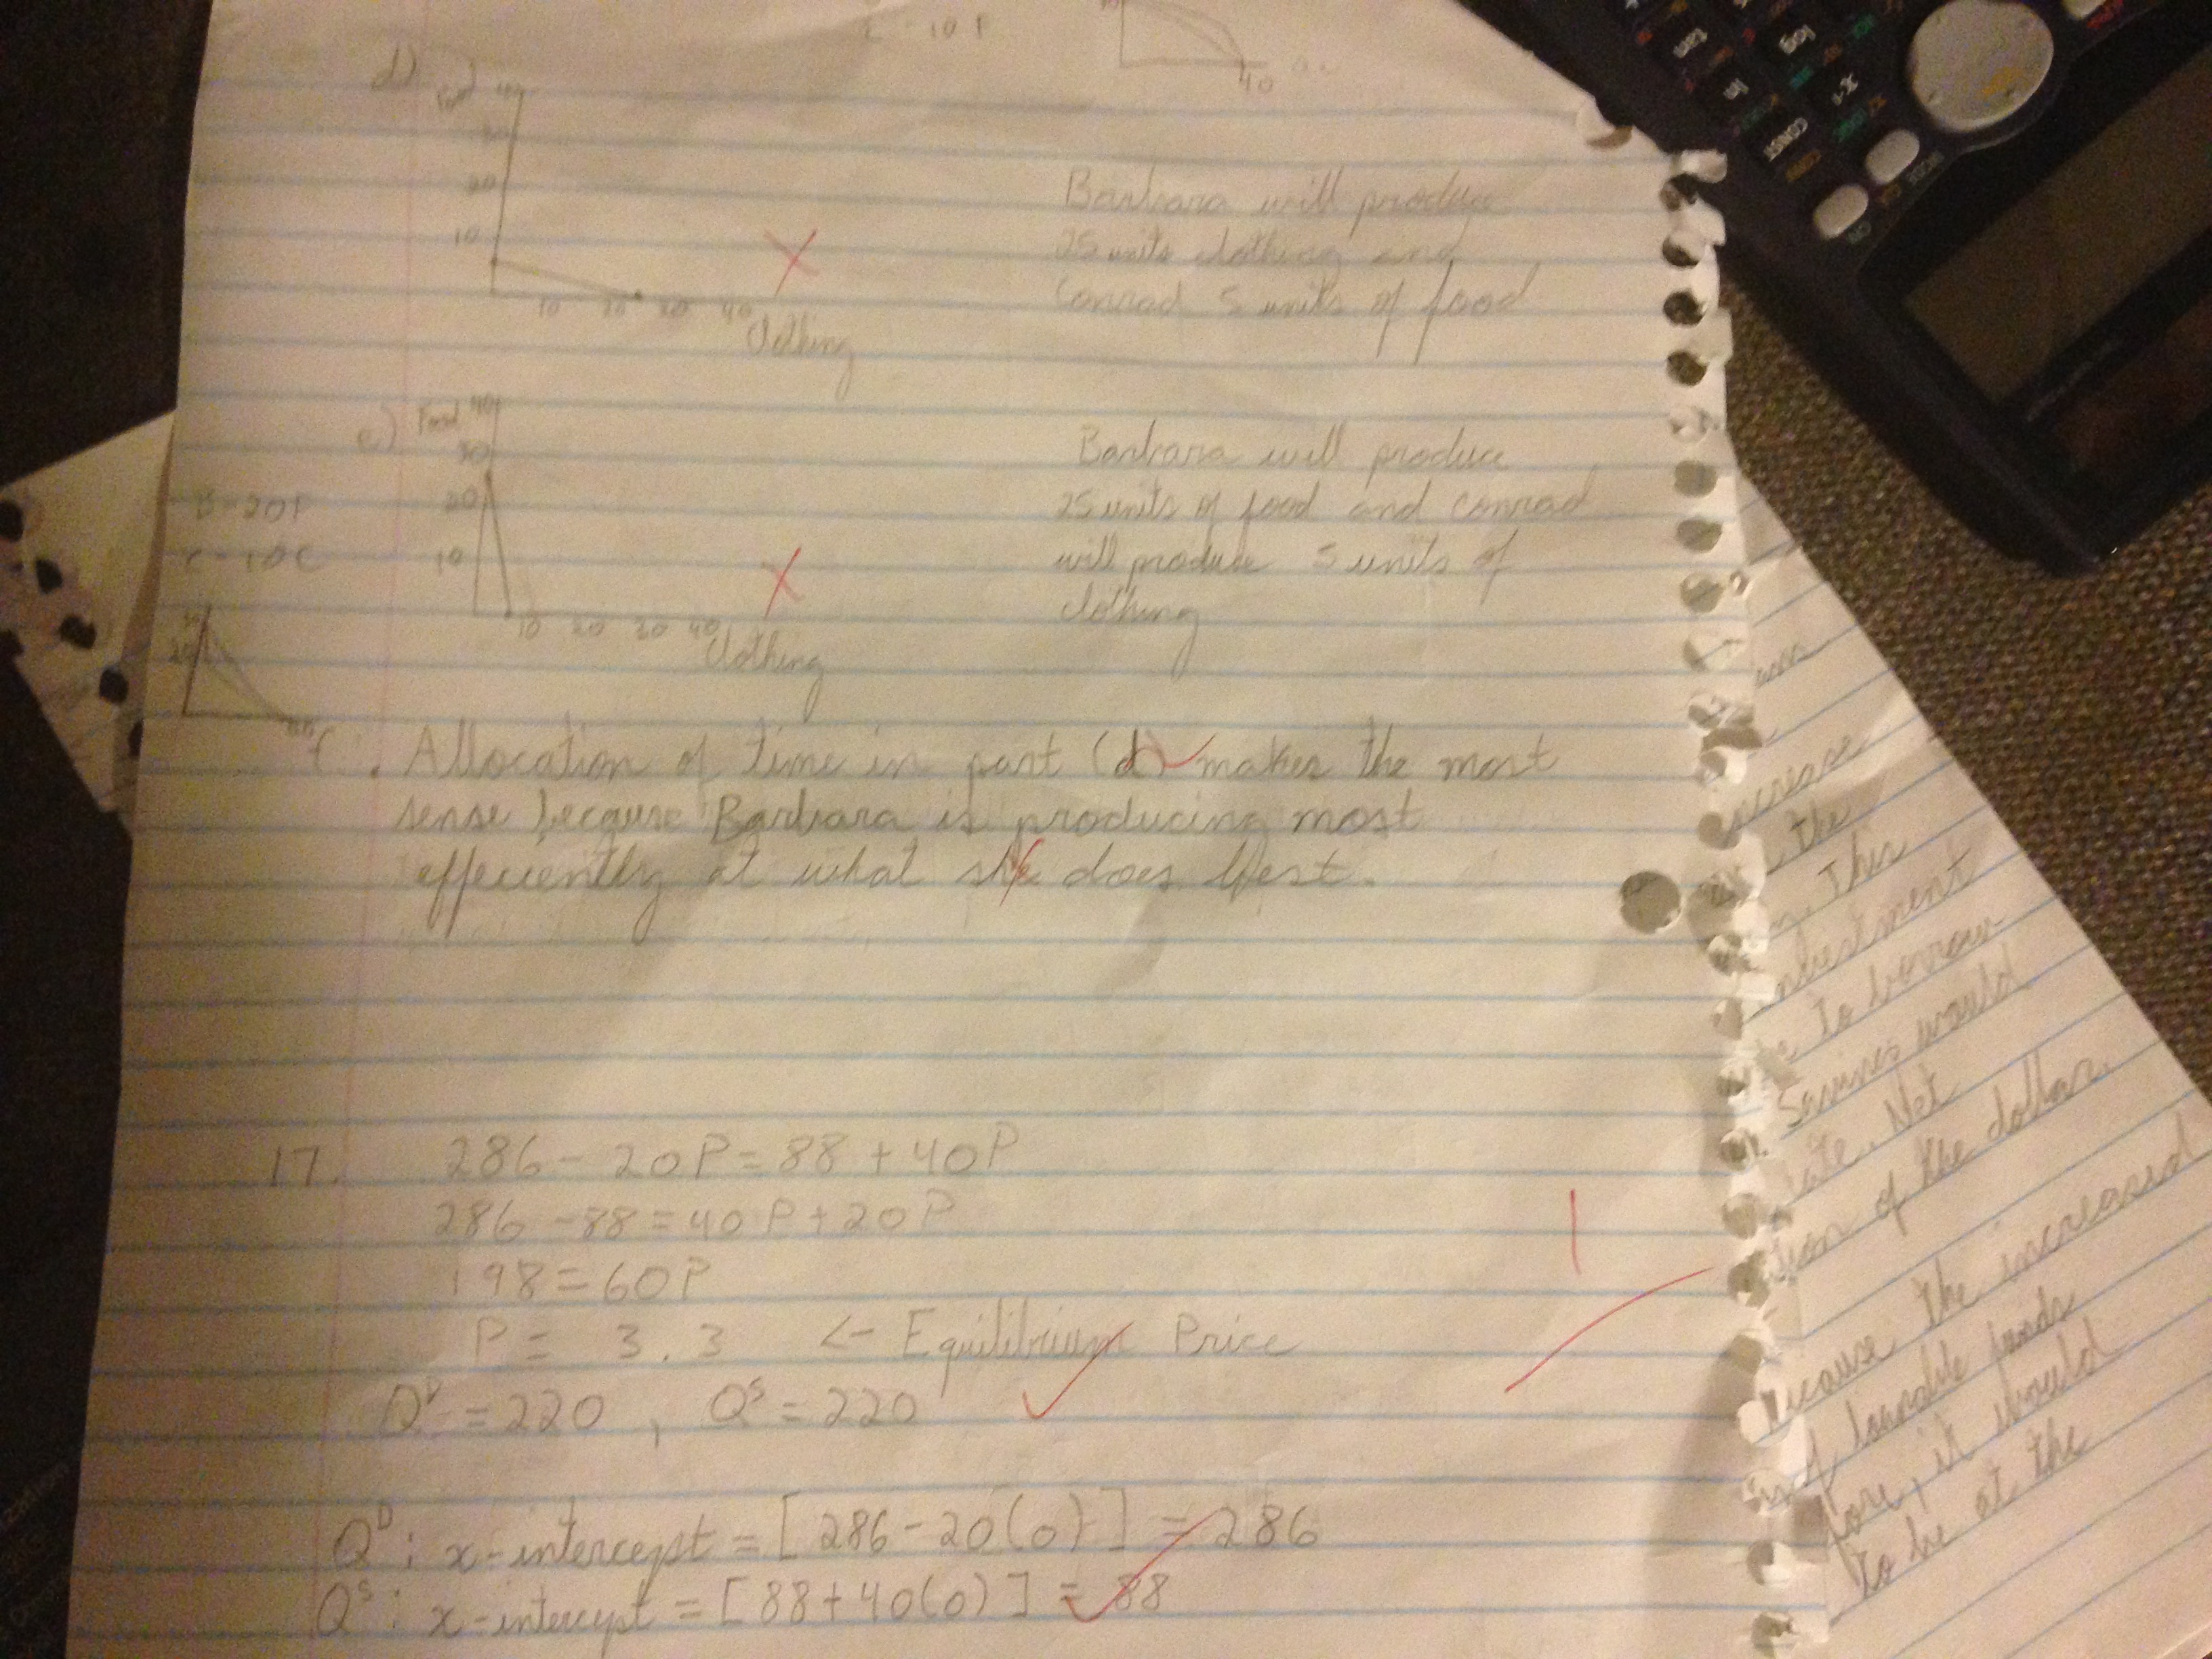 C - 10 F
40
d)
Food 40
30
20
10
10 20 30 40
Clothing
Barbara will produce
25 units clothing and
Conrad 5 units of food
e) Food 40
30
20
10
10 20 30 40
Clothing
B - 20F
C - 10C
20
Barbara will produce
25 units of food and conrad
will produce 5 units of
clothing
f. Allocation of time in part (d) makes the most
sense because Barbara is producing most
effeciently at what she does best.
17. 286 - 20P = 88 + 40P
286 - 88 = 40P + 20P
198 = 60P
P = 3.3 <- Equilibrium Price
Qᴰ = 220 , Qˢ = 220
Qᴰ: x-intercept = [286 - 20(0)] = 286
Qˢ: x-intercept = [88 + 40(0)] = 88
increase
the
This
investment
to borrow
Savings would
Net
of the dollar.
because the increased
of loanable funds
it would
to be at the
tan
log
ln
x-1
CONST